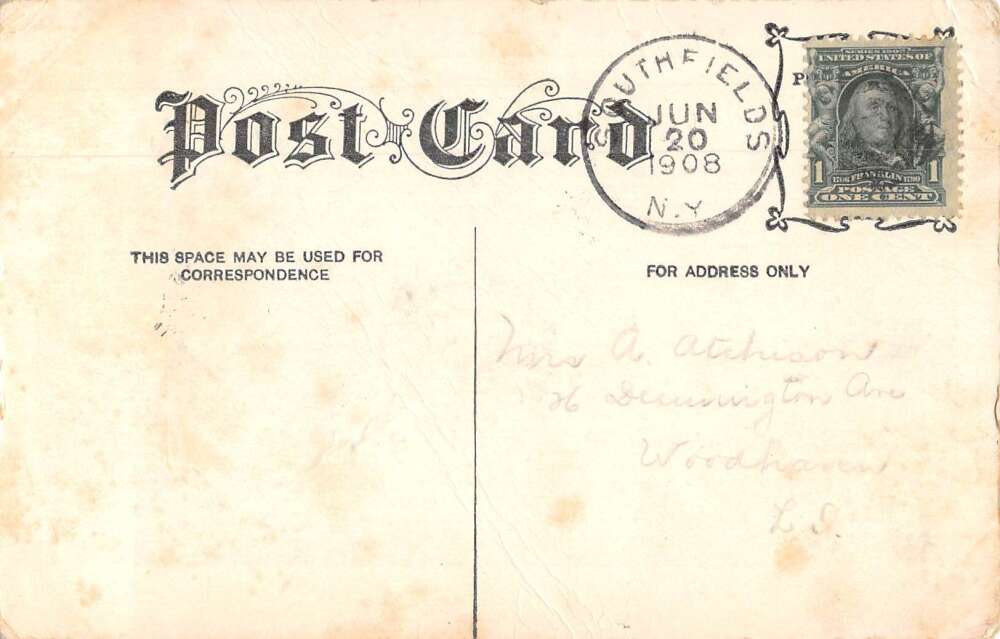 Post Card
SOUTHFIELDS
JUN
20
1908
N.Y.
SERIES 1902
UNITED STATES OF
AMERICA
1706 FRANKLIN 1790
1 POSTAGE 1
ONE CENT
THIS SPACE MAY BE USED FOR
CORRESPONDENCE
FOR ADDRESS ONLY
Mrs A. Atchison
Ave
Woodhaven